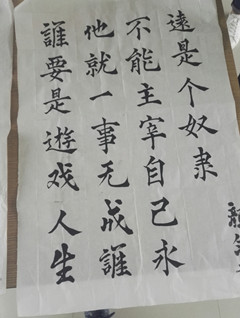 誰要是遊戏人生
他就一事无成誰
不能主宰自己永
遠是个奴隶